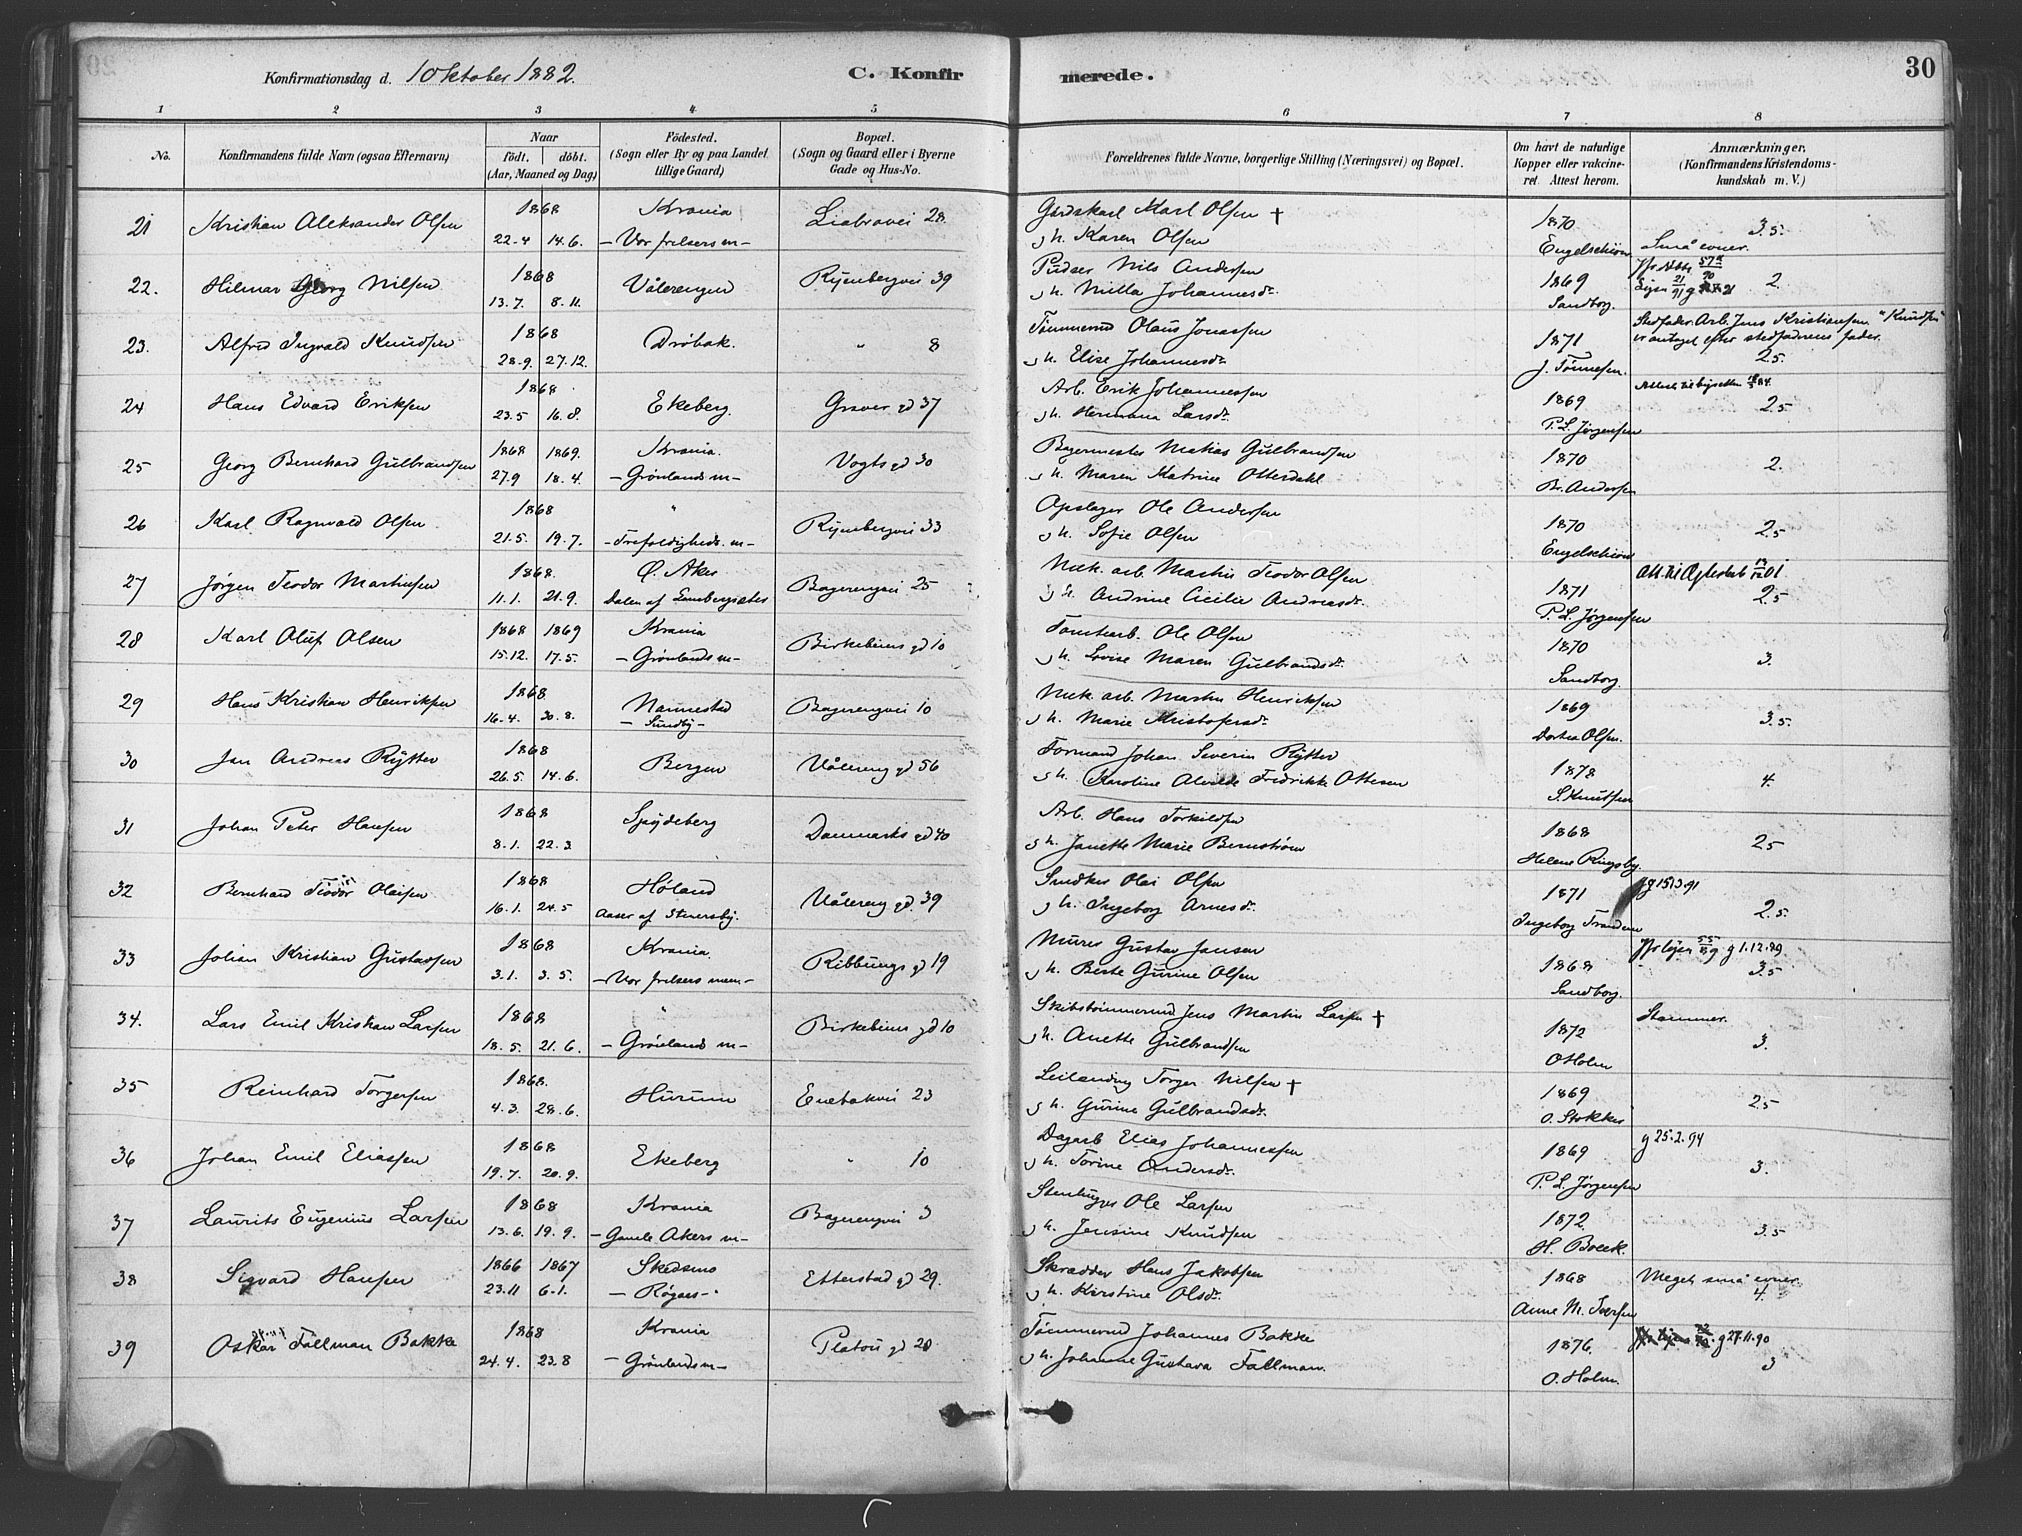 Konfirmationsdag d. 1 Oktober 1882.
C. Konfirmerede.
30
1 2 3 4 5 6 7 8
No.
Konfirmandens fulde Navn (ogsaa Efternavn)
Naar födt. döbt. (Aar, Maaned og Dag)
Födested. (Sogn eller By og paa Landet tillige Gaard)
Bopæl. (Sogn og Gaard eller i Byerne Gade og Hus-No.
Forældrenes fulde Navne, borgerlige Stilling (Næringsvei) og Bopæl.
Om havt de naturlige Kopper eller vakcineret. Attest herom.
Anmærkninger. (Konfirmandens Kristendomskundskab m. V.)
21 Kristian Aleksander Olsen 1868 22.4 14.6. Krania – Vor frelsers m – Liabrovei 28 Gårdskarl Karl Olsen † g h. Karen Olsen 1870 Engelschiøn 3.5. Små evner.
22. Hilmar Georg Nilsen 1868 13.7. 8.11. Vålerengen Ryenbergvei 39 Pudser Nils Andersen g h. Milla Johannesdr. 1869 Sandborg. 2.
23. Alfred Ingvald Knudsen 1868 28.9. 27.12. Drøbak. " 8 Tømmermd Olaus Jonassen g h. Elise Johannesdr. 1871 J. Tønnesen. Stedfader: Arb. Jens Kristiansen "Knudsen" er antaget efter stedfaderens fader. 2.5
24 Hans Edvard Eriksen 1868 23.5 16.8. Ekeberg. Graver gd 37 Arb. Erik Johannessen g h. Hermana Larsdr. 1869 P. L. Jørgensen 2.5
25 Georg Bernhard Gulbrandsen 1868 1869. 27.9 18.4. Krania. – Grønlands m – Vogts gd 30 Bagermester Matias Gulbrandsen g h. Maren Katrine Otterdahl 1870 Br. Andersen 2.
26 Karl Ragnvald Olsen 1868 21.5. 19.7. " – Trefoldigheds. m – Ryenbergvei 33 Opslager Ole Andersen g h. Sofie Olsen 1870 Engelschiøn 2.5
27 Jørgen Teodor Martinsen 1868. 11.1. 21.9. Ø. Aker Dalen af Lambergsæter Bagerengvei 25 Mek. arb. Martin Teodor Olsen g h. Andrine Cicilie Andreasdr. 1871 P. L. Jørgensen 2.5
28 Karl Oluf Olsen 1868 1869 15.12. 17.5. Krania – Grønlands m – Birkebeiner gd 10 Tomtearb. Ole Olsen g h. Lovise Maren Gulbrandsdr. 1870 Sandborg. 3.
29 Hans Kristian Henriksen 1868 16.4. 30.8. Nannestad – Sundby – Bagerengvei 10 Mek. arb. Martin Henriksen g h. Marie Kristofersdr. 1869 Dortea Olsen. 3.5.
30 Jan Andreas Rÿtter 1868 26.5. 14.6. Bergen Vålereng gd 56 Formand Johan Severin Rÿtter g h. Karoline Alvilde Fredrikke Ottesen 1878 S. Knutsen 4.
31 Johan Peter Hansen 1868 8.1. 22.3. Spydeberg Danmarks gd 40 Arb. Hans Torkildsen g h. Janette Marie Bernstrøm 1868 Helene Ringsby. 2.5
32 Bernhard Teodor Olaisen 1868 16.1. 24.5 Høland Aaser af Steversby. Vålereng gd. 39 Snedker Olai Olsen g h. Ingeborg Arnesdr. 1871 Ingeborg Trandem g 15.3.91 2.5.
33 Johan Kristian Gustavsen 1868 3.1. 3.5. Krania. – Vor frelsers men – Ribbungs gd 19 Murer Gustav Jansen g h. Berte Gurine Olsen 1868 Sandborg. g 1.12.89 3.5
34. Lars Emil Kristian Larsen 1868 18.5. 21.6. " – Grønlands m – Birkebeiner gd 10 Skibstømmermd Jens Martin Larsen † g h. Anette Gulbrandsen 1872 O Holm Stammer. 3.
35 Reinhard Torgersen 1868. 4.3. 28.6. Hurum Enebakvei 23 Leilænding Torger Nilsen † g h. Gurine Gulbrandsdr. 1869 O. Stokker 2.5
36 Johan Emil Eliassen 1868 19.7. 20.9. Ekeberg " 10 Dagarb Elias Johannessen g h. Torine Andersdr. 1869 P. L. Jørgensen g 25.2.94 3.
37 Laurits Eugenius Larsen 1868 13.6. 19.9. Krania – Gamle Akers m – Bagerengvei 3 Stenhugger Ole Larsen g h. Jensine Knudsen 1872. H. Boeck. 3.5
38 Sigvard Hansen 1866 1867 23.11 6.1. Skedsmo – Røgaes – Etterstad gd 29. Skrædder Hans Jakobsen g h. Kirstine Olsdr. 1868 Anne M. Iversen Meget små evner. 4.
39 Oskar Fallman Bakke 1868 24.4. 23.8 Krania – Grønlands m – Platou gd 20 Tømmermd Johannes Bakke g h. Johanne Gustava Fallman. 1876. O. Holm. g 27.11.90 3